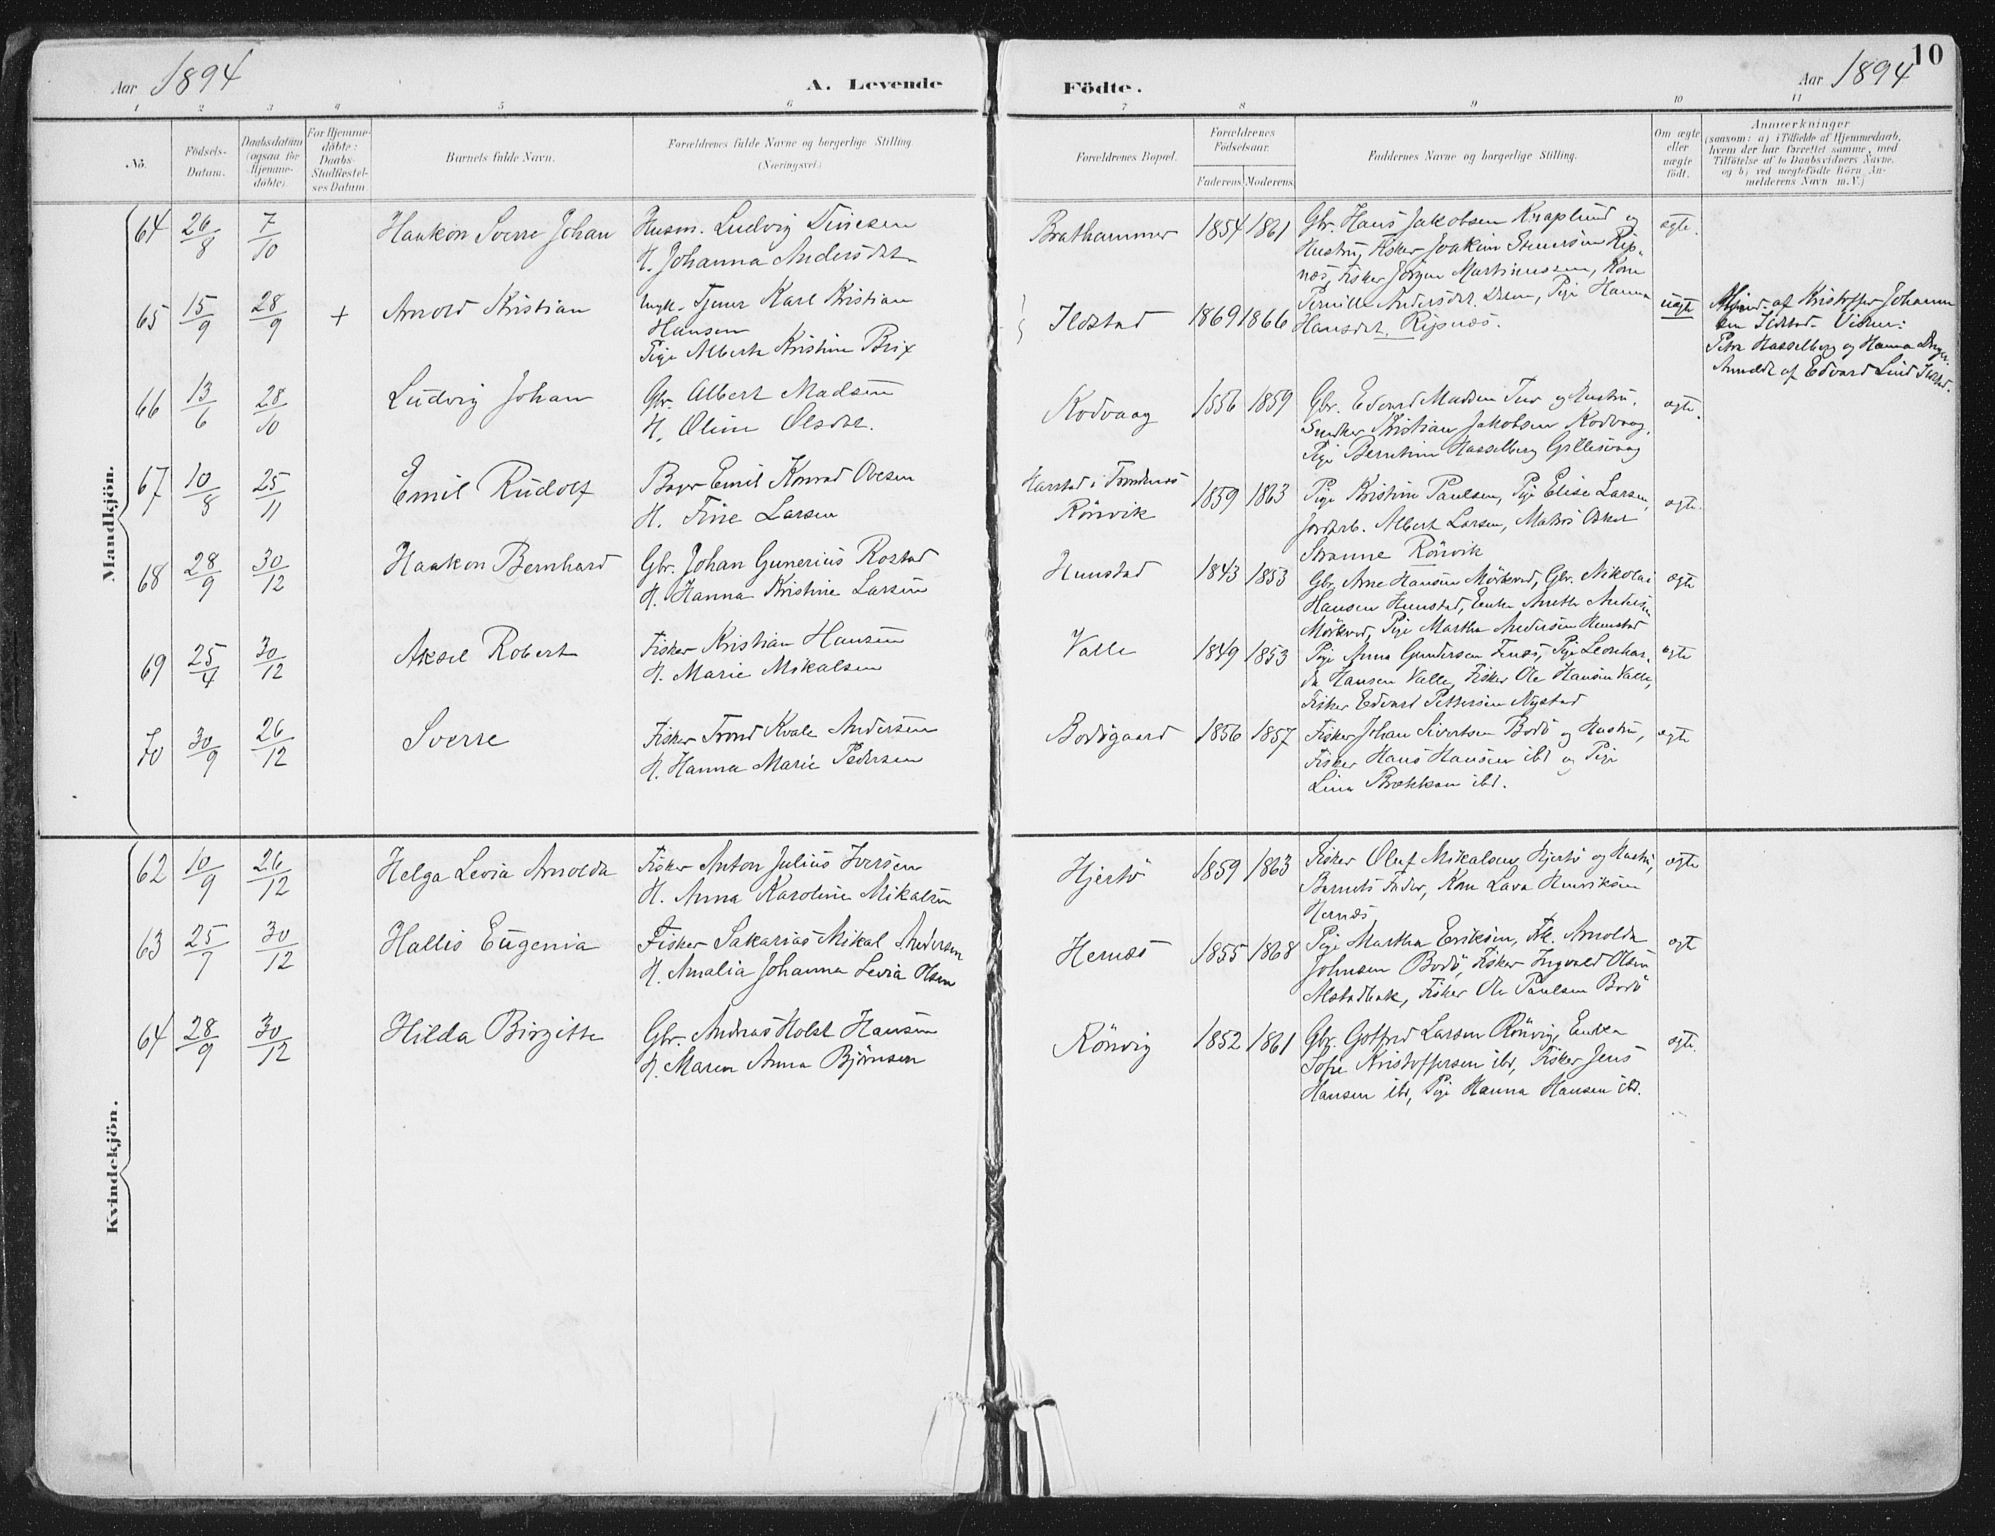 Aar 1894
A. Levende
Födte.
Aar 1894
10
1 2 3 4 5 6 7 8 9 10 11
No.
Födsels-
Datum.
Daabsdatum
(ogsaa for
Hjemme-
döbte).
For Hjemme-
döbte:
Daabs-
Stadfæstel-
ses Datum
Barnets fulde Navn.
Forældrenes fulde Navne og borgerlige Stilling
(Næringsvei.)
Forældrenes Bopæl.
Forældrenes
Födselsaar.
Faderens Moderens
Faddernes Navne og borgerlige Stilling.
Om ægte
eller
uægte
födt.
Anmærkninger
(saasom: a) i Tilfælde af Hjemmedaab,
hvem der har forrettet samme, med
Tilföielse af to Daabsvidners Navne.
og b) ved uægtefödte Börn An-
melderens Navn m.V.)
Mandkjön.
64 26/8 7/10 Haakon Sverre Johan
Husm. Ludvig Dinesen
H. Johanna Andersdat.
Brathammer 1854 1861
Gbr. Hans Jakobsen Knaplund og
Hustru, Fisker Joakim Steensen Rip-
næs, Fisker Jörgen Martinussen, Kone
Pernille Andersdat. Pige Hanna
Hansdat. Ripnæs.
ægte.
65 15/9 28/9 + Arnold Kristian
Ungk. Tjener Karl Kristian
Hansen
Pige Alberte Kristine Brix
Ildstad 1869 1866
uægte
Hjmd. af Kristoffer Johann
sen Ildstad. Vidner:
Petra Hasselberg og Hanna
Anmeldt af Edvard Lind Ildstad.
66 13/6 28/10 Ludvig Johan
Gbr. Albert Madsen
H. Oline Olsdat.
Kodvaag 1856 1859
Gbr. Edvard Madsen og Hustru,
Snedker Kristian Jakobsen Kodvaag,
Pige Berntine Hasselberg Gillesvaag
ægte.
67 10/8 25/11 Emil Rudolf
Bager Emil Konrad Ovesen
H. Fine Larsen
Harstad i Trondenæs
Rönvik 1859 1863
Pige Kristine Paulsen, Pige Elise Larsen,
Jordarb. Albert Larsen, Matros Oskar
Strånne Rönvik
ægte.
68 28/9 30/12 Haakon Bernhard
Gbr. Johan Gunerius Rostad
H. Hanna Kristine Larsen
Hunstad 1843 1853
Gbr. Arne Hansen Mörkved, Gbr. Nikolai
Hansen Hunstad, Enke Anette Andersen
Mörkved, Pige Martha Andersen Hunstad
ægte
69 25/4 30/12 Aksel Robert
Fisker Kristian Hansen
H. Marie Mikalsen
Valle 1849 1853
Pige Anna Gundersen Pige Leonhar-
da Hansen Valle, Fisker Ole Hansen Valle,
Fisker Edvart Pettersen Nystad
ægte
70 30/9 26/12 Sverre
Fisker Trond Kvale Andersen
H. Hanna Marie Pedersen
Bodögaard 1856 1857
Fisker Johan Sivertsen Bodö og Hustru,
Fisker Hans Hansen ibd og Pige
Lina Brækkan ibd.
ægte
Kvindekjön.
62 10/9 26/12 Helga Levia Arnolda
Fisker Anton Julius Iversen
H. Anna Karoline Mikalsen
Hjertö 1859 1863
Fisker Oluf Mikalsen Hjertö og Hustru,
Barnets Fader, Kone Lava Henriksen
Hernæs
ægte
63 25/7 30/12 Hallis Eugenia
Fisker Sakarias Mikal Andersen
H. Amalia Johanna Levia Olsen
Hernæs 1855 1868
Pige Martha Eriksen, Frk. Arnolda
Johnsen Bodö, Fisker Ingvald Olsen
Alstadbak, Fisker Ole Paulsen Bodö
ægte
64 28/9 30/12 Hilda Birgitte
Gbr. Andreas Holst Hansen
H. Maren Anna Björnsen
Rönvig 1852 1861
Gbr. Gotfred Larsen Rönvig, Enke
Sofie Kristoffersen ibd, Fisker Jens
Hansen ibd, Pige Hanna Hansen ibd.
ægte.